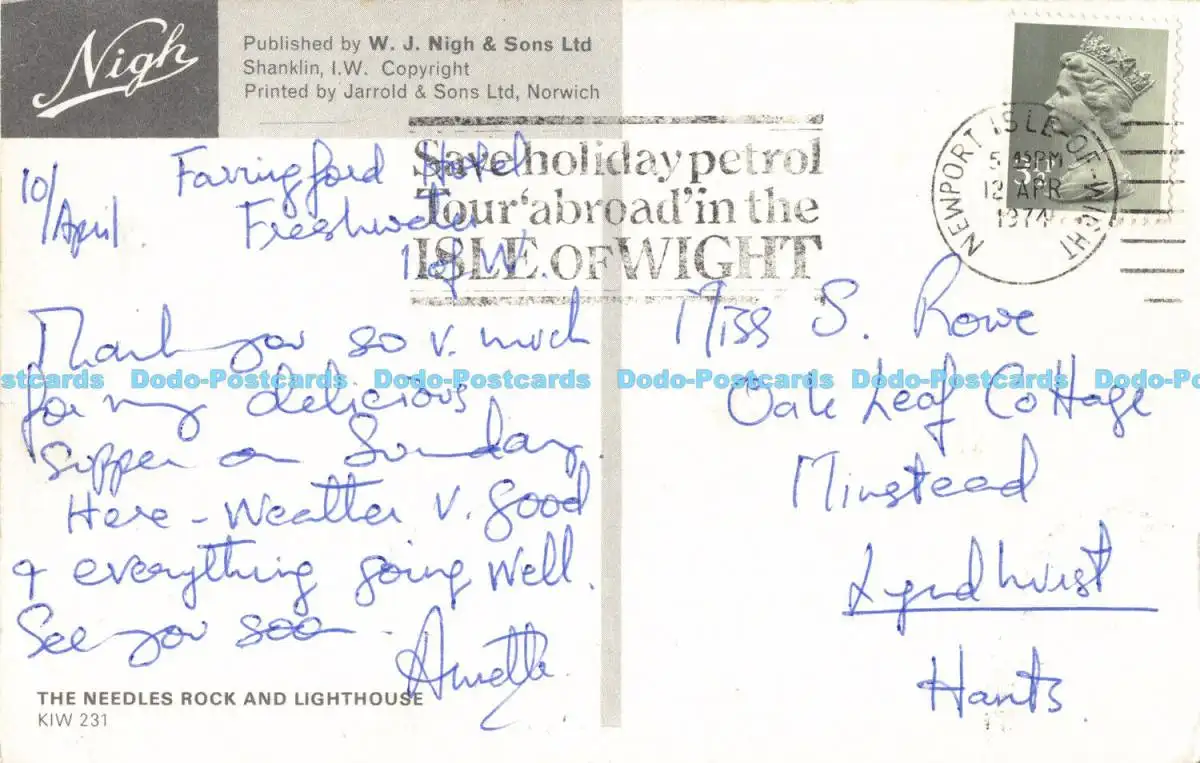 Nigh
Published by W. J. Nigh & Sons Ltd
Shanklin, I.W. Copyright
Printed by Jarrold & Sons Ltd, Norwich
Save holiday petrol
Tour 'abroad' in the
ISLE OF WIGHT
NEWPORT ISLE-OF-WIGHT
5 45PM
12 APR
1974
10/
April
Farringford Hotel
Freshwater
I of W.
Thank you so v. much
for my delicious
supper on Sunday
Here - Weather v. good
& everything going well.
See you soon -
THE NEEDLES ROCK AND LIGHTHOUSE
KIW 231
Miss S. Rowe
Oak Leaf Cottage
Minstead
Lyndhurst
Hants.
stcards Dodo-Postcards Dodo-Postcards Dodo-Postcards Dodo-Postcards Dodo-Po